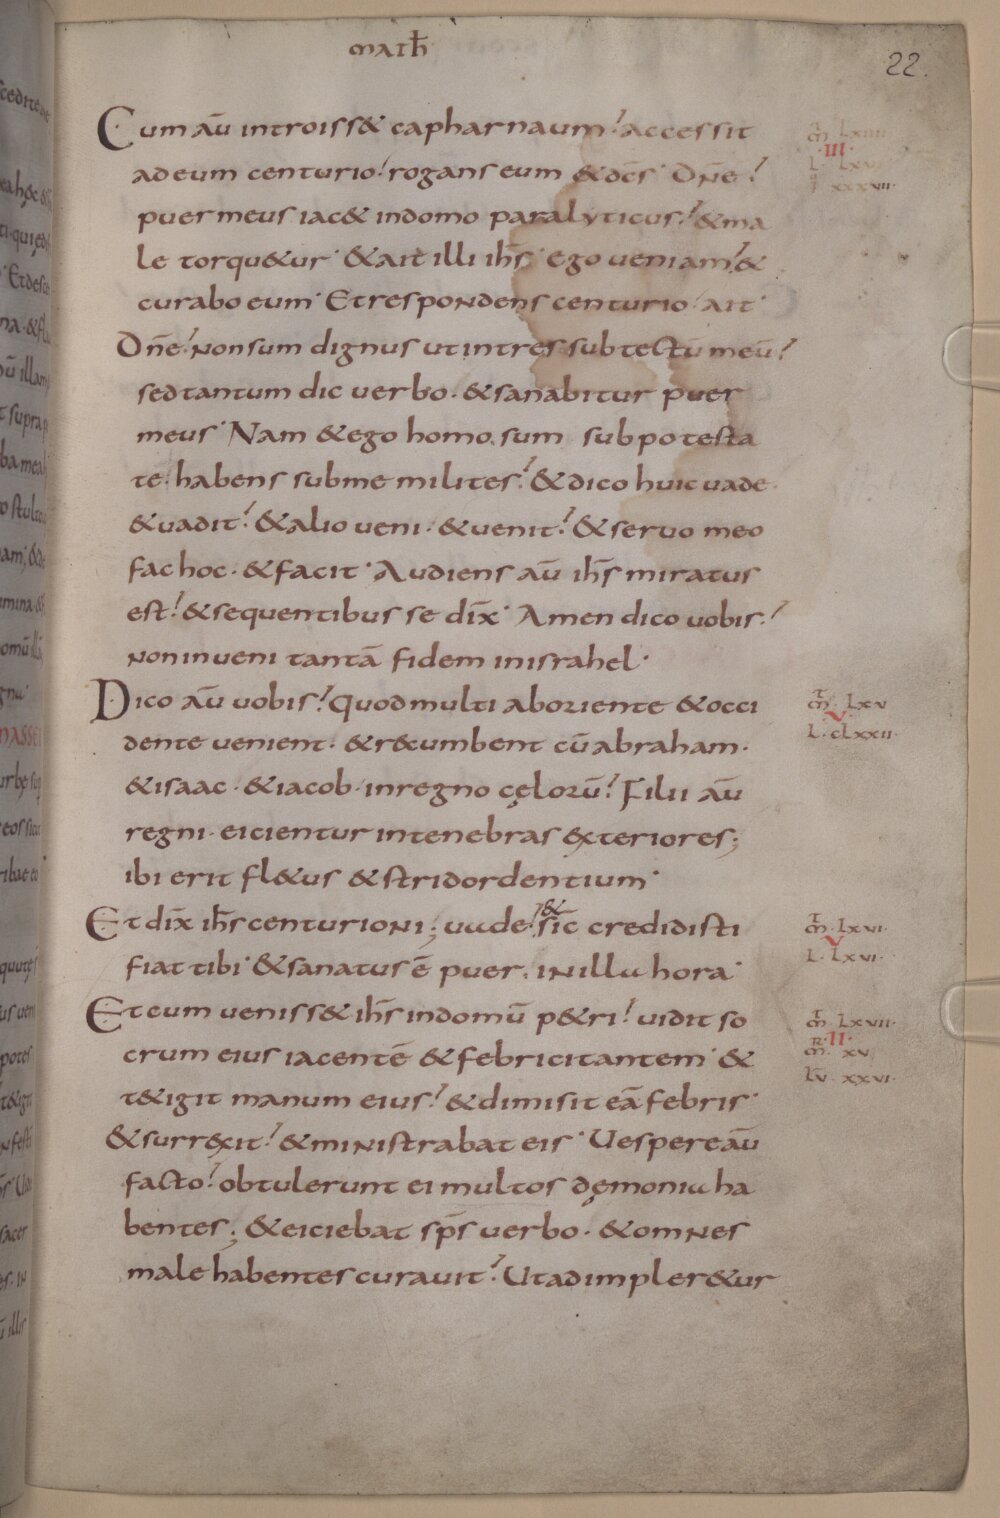 math
22.
Cum aū introiss& capharnaum? accessit
ad eum centurio? rogans eum & dc̄s Dn̄e?
puer meus iac& in domo paralyticus? & ma
le torqu&ur · & ait illi ih̄s · ego ueniam? &
curabo eum · Et respondens centurio ait ·
Dn̄e? non sum dignus ut intres sub tectū meū?
sed tantum dic uerbo · & sanabitur puer
meus · Nam & ego homo sum sub potesta
te habens sub me milites? & dico huic uade ·
& uadit? & alio ueni · & uenit? & seruo meo
fac hoc · & facit · Audiens aū ih̄s miratus
est? & sequentibus se dix̄ · Amen dico uobis?
non inueni tantā fidem in israhel ·
Dico aū uobis? quod multi ab oriente & occi
dente uenient · & r&cumbent cū abraham ·
& isaac · & iacob · in regno cęlorū? Filii aū
regni · eicientur in tenebras exteriores;
ibi erit fl&us & stridor dentium ·
Et dix̄ ih̄s centurioni; uade? & sic̄ credidisti
fiat tibi · & sanatus ē puer · in illa hora ·
Et cum ueniss& ih̄s in domū p&ri? uidit so
crum eius iacentē & febricitantem · &
t&igit manum eius? & dimisit eā febris ·
& surrexit? & ministrabat eis · Uespere aū
facto? obtulerunt ei multos dęmonia ha
bentes; & eiciebat sp̄s uerbo · & omnes
male habentes curauit? Ut adimpler&ur
III
L · LXV
XXXVII
m̄ LXV
V
L · CLXXII
m̄ · LXVI
V
L · LXVI
m̄ LXVII
II
m̄ · XV
LV̄ XXVI